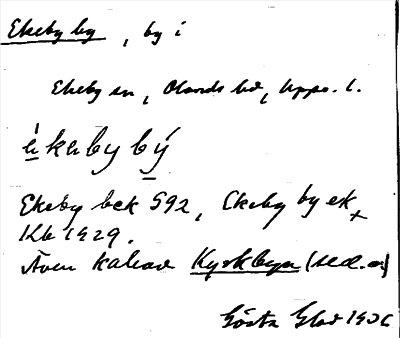 Ekeby by, by i
Ekeby sn, Olands hd, Upps. l.
Ekeby bek 592, Ekeby by ek
Kb 1929.
Även kallad Kyrkbyn (se d. o.)
Gösta Glad 1926